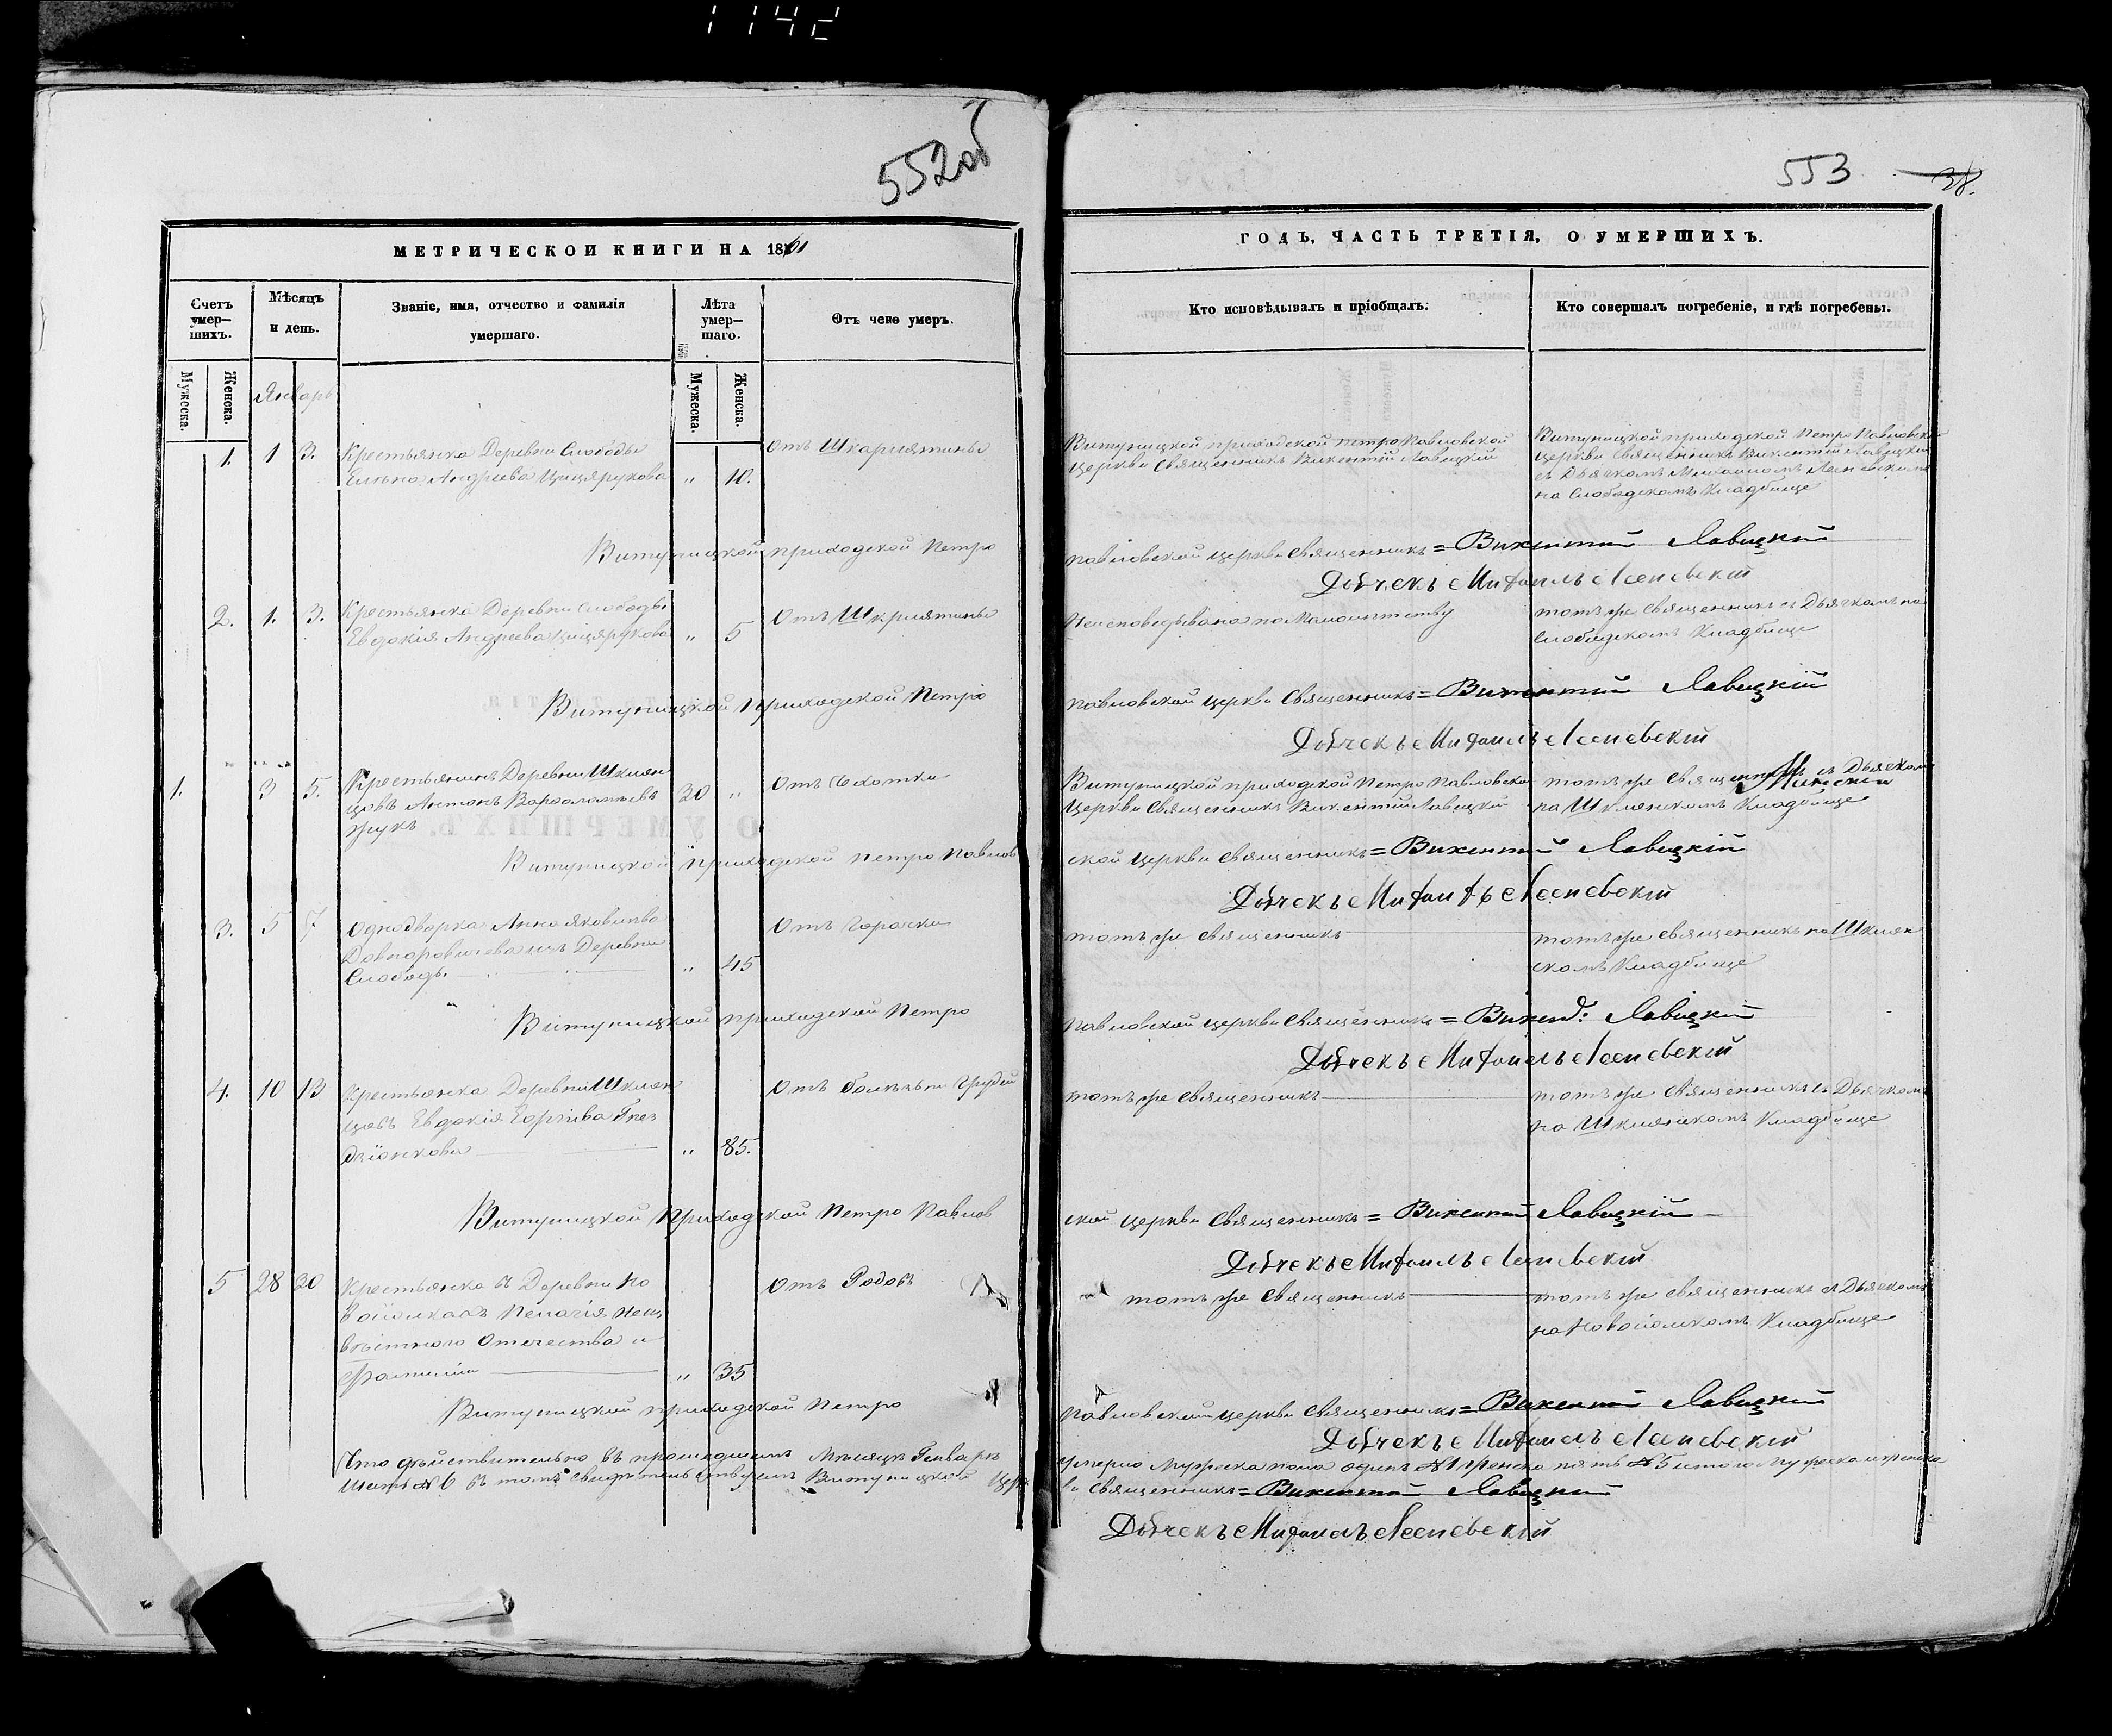 1142
552об
МЕТРИЧЕСКОЙ КНИГИ НА 1861
Счетъ умер-шихъ.
Мѣсяцъ и день.
Званіе, имя, отчество и фамилія умершаго.
Лѣта умер-шаго.
Отъ чего умеръ.
Мужеска.
Женска.
Январь
Мужеска.
Женска.
1. 1 3. Крестьянка Деревни Слободы
Отъ Шкарлятины
Андреева Цицярукова „ 10.
Витуницкой приходской Петро
2. 1. 3. Крестьянка Деревни Слободы
Отъ Шкрлятины
Евдокія Андреева Цицярукова „ 5
Витуницкой Приходской Петро
1. 3 5. Крестьянинъ Деревни Шклян
цовъ Антонъ Варфоломѣевъ 30 „
Жукъ
Витуницкой приходской Петро Павлов
3. 5 7 Однодворка Анна
Отъ Горячки
из Деревни
Слободы „ 45
Витуницкой приходской Петро
4. 10 13 Крестьянка Деревни Шклян
Отъ болѣзни Груди
цовъ Евдокія
„ 85.
Витуницкой Приходской Петро Павлов
5 28 30 Крестьянка съ Деревни Но
Отъ Родовъ
Пелагія Неиз
вѣстнаго Отечества и
Фамиліи „ 35
Витуницкой приходской Петро
Что дѣйствительно въ прошедшемъ Мѣсяцѣ Генварѣ
шесть № 6 въ томъ Витуницкой Церк
553 38.
ГОДЪ, ЧАСТЬ ТРЕТІЯ, О УМЕРШИХЪ.
Кто исповѣдывалъ и пріобщалъ.
Кто совершалъ погребеніе, и гдѣ погребены.
Витуницкой приходской Петро Павловской
Церкви Священникъ Викентій Лавицкій
Витуницкой приходской Петро Павловской
Церкви Священникъ Викентій Лавицкій
съ Дьячкомъ Михаиломъ
на Слободскомъ Кладбище
Павловской Церкви Священникъ = Викентій Лавицкій
Дьячекъ Михаилъ
Неисповедывана по Малолѣтству
тотъ же Священникъ съ Дьячкомъ на
Слободскомъ Кладбище
Павловской Церкви Священникъ = Викентій Лавицкій
Дьячекъ Михаилъ
Витуницкой приходской Петро Павловской
Церкви Священникъ Викентій Лавицкій
тотъ же Священникъ съ Дьячкомъ
на Шклянскомъ Кладбище
ской Церкви Священникъ = Викентій Лавицкій
Дьячекъ
тотъ же Священникъ
тотъ же Священникъ на Шклян
скомъ Кладбище
Павловской Церкви Священникъ = Лавицкій
Дьячекъ Михаилъ
тотъ же Священникъ
тотъ же Священникъ съ Дьячкомъ
на Шклянскомъ Кладбище
ской Церкви Священникъ = Викентій Лавицкій
Дьячекъ Михаилъ
тотъ же Священникъ
тотъ же Священникъ съ Дьячкомъ
Кладбище
Павловской Церкви Священникъ = Викентій Лавицкій
Дьячекъ Михаилъ
умерло Мужеска пола одинъ № 1 Женска пять № 5 итого Мужеска и женска
ви Священникъ = Викентій Лавицкій
Дьячекъ Михаилъ